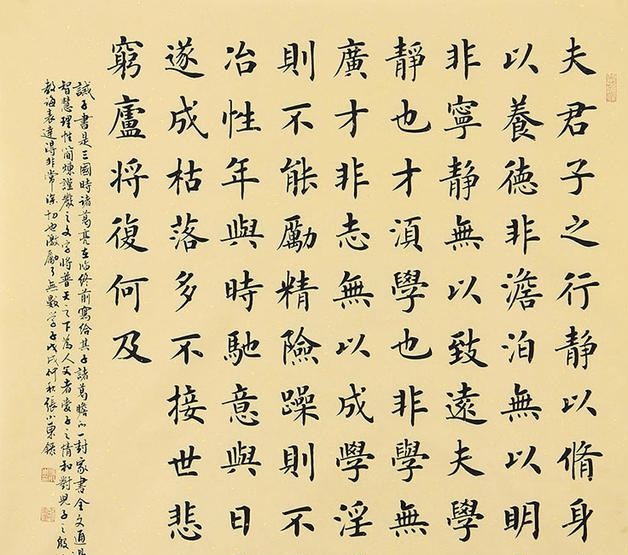 夫君子之行靜以脩身
以養德非澹泊無以明
非寧靜無以致遠夫學
靜也才湏學也非學無
廣才非志無以成學淫
則不能勵精險躁則不
冶性年與時馳意與日
遂成枯落多不接世悲
窮廬將復何及
誡子書是三國時諸葛亮在临终前寫給其子諸葛瞻的一封家書全文通
智慧理性簡煉謹嚴之文字將普天之下為人父者愛子之情和對兒子之殷
教誨表達得非常深切也激勵了無數学子戊戌仲秋張小東録